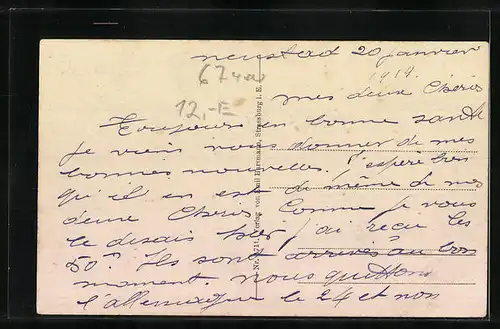 neustad 20 janvier
1919.
67 400
12,-E
mes deux Cheris
Toujours en bonne santé
je viens vous donner de mes
bonnes nouvelles. J'espère bien
qu'il en est de même de vos
deux Cheris. Comme je vous
le disais hier j'ai reçu les
50f. Ils sont arrivés au bon
moment. nous quittons
l'allemagne le 24 et non
Verlag von Emil Hartmann, Strassburg i. E.